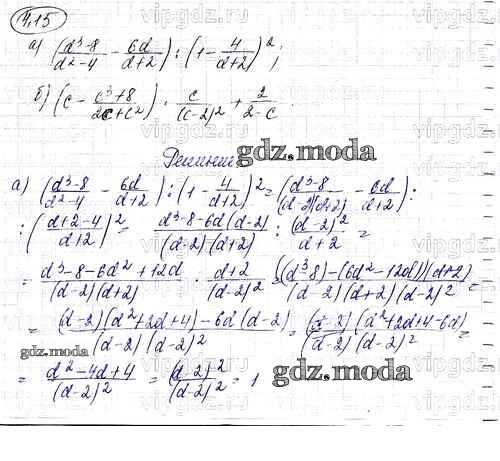 4.15
а) (d³-8/d²-4 - 6d/d+2) : (1 - 4/d+2)²;
б) (c - c³+8/2c+c²) · c/(c-2)² + 2/2-c.
Решение gdz.moda
а) (d³-8/d²-4 - 6d/d+2) : (1 - 4/d+2)² = (d³-8/(d-2)(d+2) - 6d/d+2) :
: (d+2-4/d+2)² = d³-8-6d(d-2)/(d-2)(d+2) : (d-2)²/d+2 =
= d³-8-6d²+12d/(d-2)(d+2) · d+2/(d-2)² = ((d³-8)-(6d²-12d))(d+2)/(d-2)(d+2)(d-2)² =
= (d-2)(d²+2d+4)-6d(d-2)/(d-2)(d-2)² = (d-2)(d²+2d+4-6d)/(d-2)(d-2)² =
gdz.moda
= d²-4d+4/(d-2)² = (d-2)²/(d-2)² = 1 gdz.moda
vipgdz.com